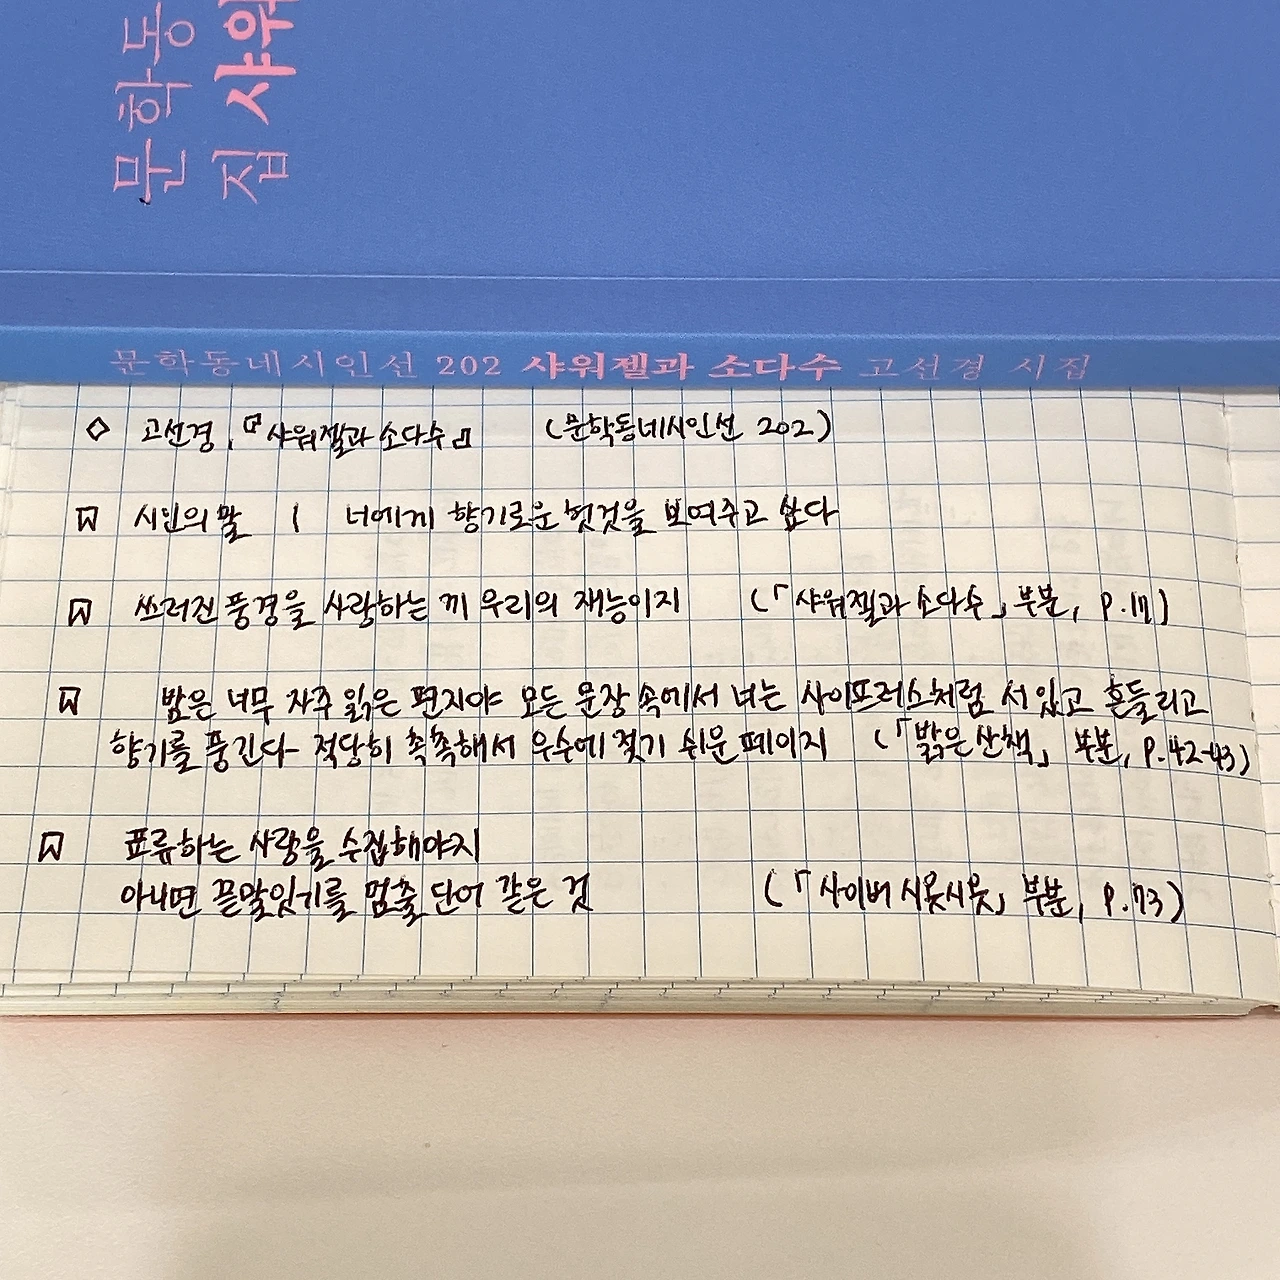 문학동
집 샤워
문학동네시인선 202 샤워젤과 소다수 고선경 시집
◇ 고선경, 『샤워젤과 소다수』 (문학동네시인선 202)
시인의 말 | 너에게 향기로운 헛것을 보여주고 싶다
쓰러진 풍경을 사랑하는 게 우리의 재능이지 (「샤워젤과 소다수」 부분, p.17)
밤은 너무 자주 읽은 편지야 모든 문장 속에서 너는 사이프러스처럼 서 있고 흔들리고
향기를 풍긴다 적당히 축축해서 우수에 젖기 쉬운 페이지 (「밝은 산책」 부분, p.42-43)
표류하는 사랑을 수집해야지
아니면 끝말잇기를 멈출 단어 같은 것 (「사이버 시옷시옷」 부분, p.73)